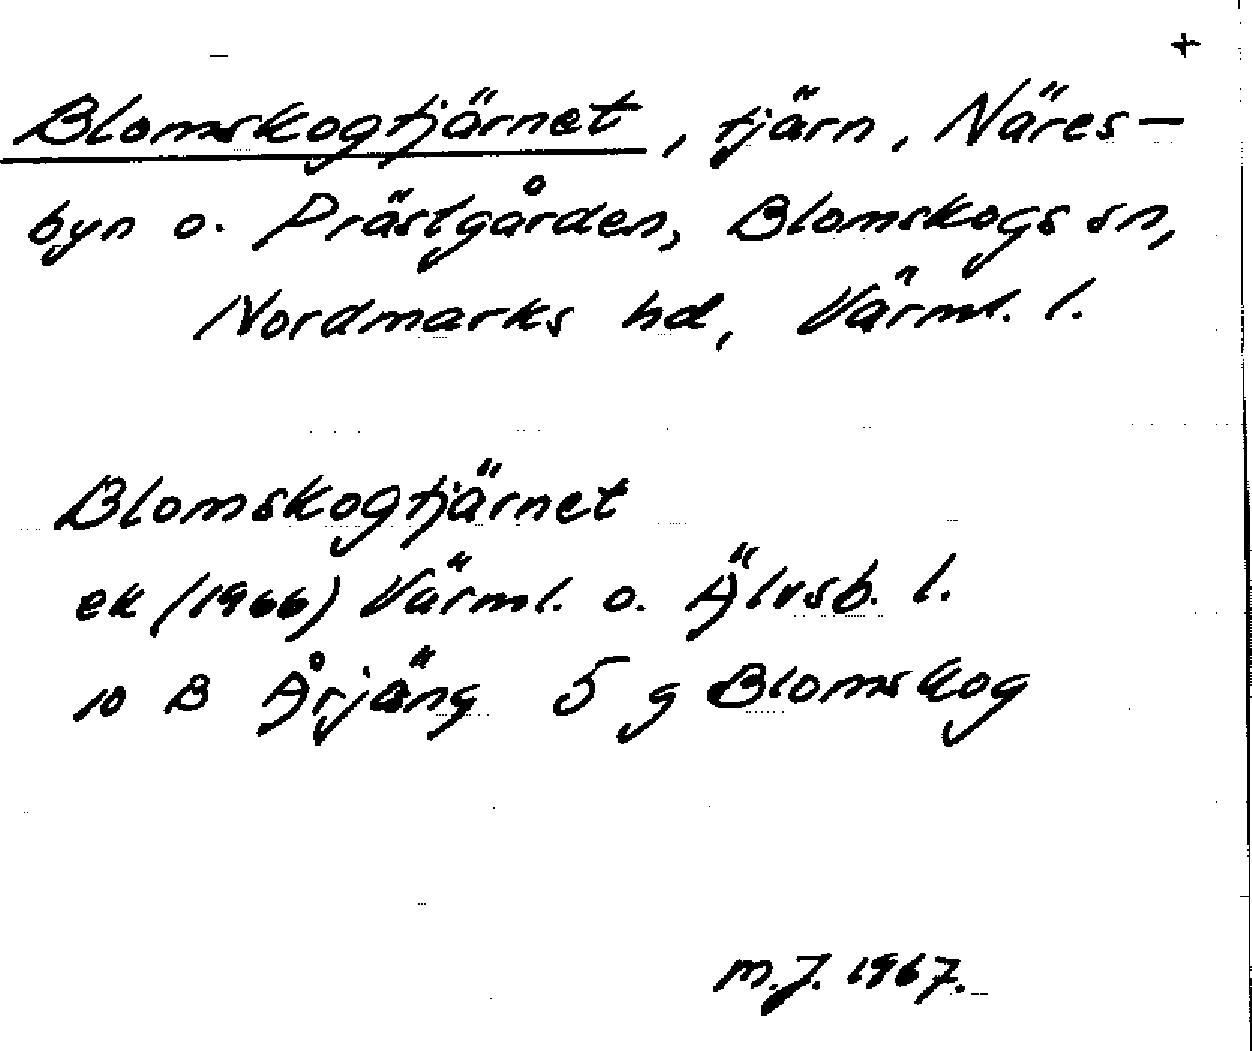 +
Blomskogtjärnet, tjärn, Näres-
byn o. Prästgården, Blomskogs sn,
Nordmarks hd, Värml. l.
Blomskogtjärnet
ek (1966) Värml. o. Älvsb. l.
10 B Årjäng 5 g Blomskog
M.J. 1967.